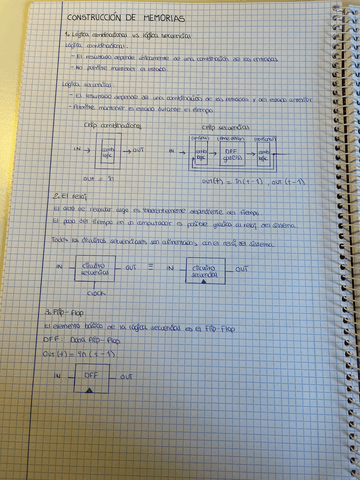 CONSTRUCCIÓN DE MEMORIAS
1. Lógica combinacional vs. lógica secuencial
Lógica combinacional:
- El resultado depende únicamente de una combinación de las entradas
- No permite mantener el estado
Lógica secuencial
- El resultado depende de una combinación de las entradas y del estado anterior
- Permite mantener el estado durante el tiempo.
Chip combinacional
Chip secuencial
IN → comb logic → OUT
IN → comb logic DFF gate(s) comb logic → OUT
out =
out(t) = (t-1), out (t-1)
2. El reloj
El acto de recordar algo es inherentemente dependiente del tiempo
El paso del tiempo en un computador es posible gracias al reloj del sistema.
Todos los circuitos secuenciales son alimentados con el reloj del sistema.
IN circuito secuencial OUT ≡ IN circuito secuencial OUT
CLOCK
3. Flip-flop
El elemento básico de la lógica secuencial es el flip-flop
DFF Data flip-flop
Out(t) = in(t-1)
IN DFF OUT